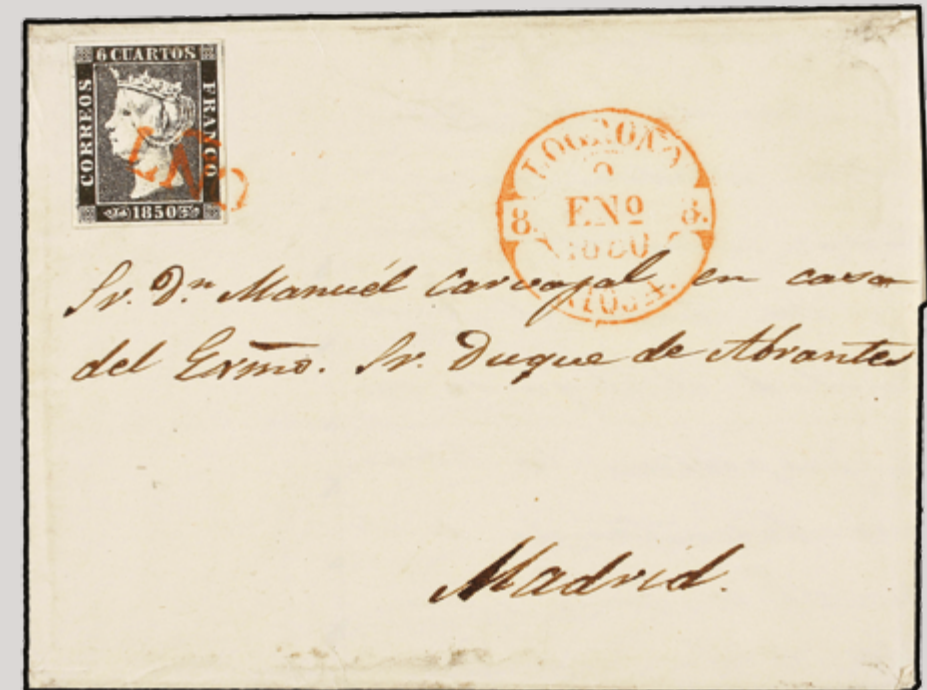 6 CUARTOS
CORREOS
FRANCO
1850
LOGROÑO
ENº
1850
8. 8.
RIOJA.
Sr. Dn Manuel Carvajal en casa
del Exmo. Sr. Duque de Abrantes
Madrid.